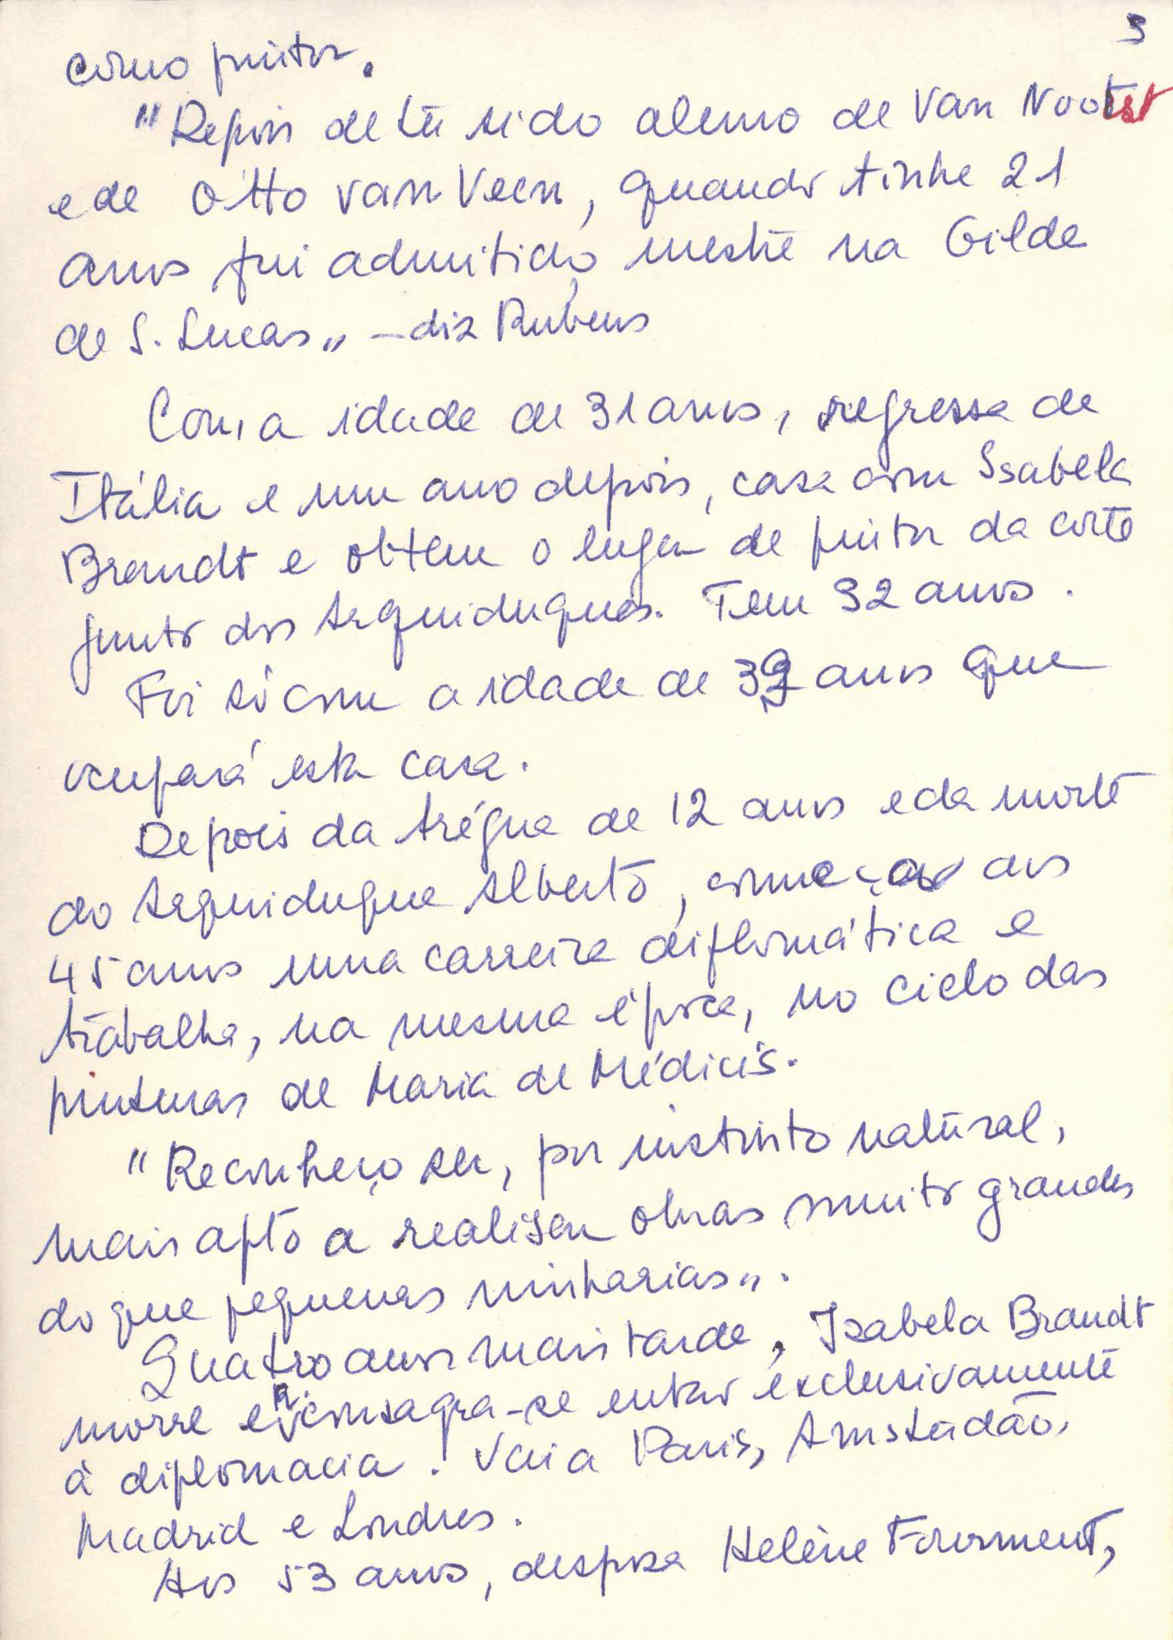 3
como pintor.
"Depois de ter sido aluno de Van Noort
e de Otto van Veen, quando tinha 21
anos fui admitido, mestre na Gilda
de S. Lucas„ – diz Rubens
Com a idade de 31 anos, regressa de
Itália e um ano depois, casa com Isabela
Brandt e obtem o lugar de pintor da corte
junto dos Arquiduques. Tem 32 anos.
Foi só com a idade de 39 anos que
ocupará esta casa.
Depois da trégua de 12 anos e da morte
do Arquiduque Alberto, começa aos
45 anos uma carreira diplomática e
trabalha, na mesma época, no ciclo das
pinturas de Maria de Médicis.
"Reconheço ser, por instinto natural,
mais apto a realisar obras muito grandes
do que pequenas ninharias„.
Quatro anos mais tarde, Isabela Brandt
morre e R. consagra-se então exclusivamente
à diplomacia. Vai a Paris, Amsterdão,
Madrid e Londres.
Aos 53 anos, desposa Helène Fourment,